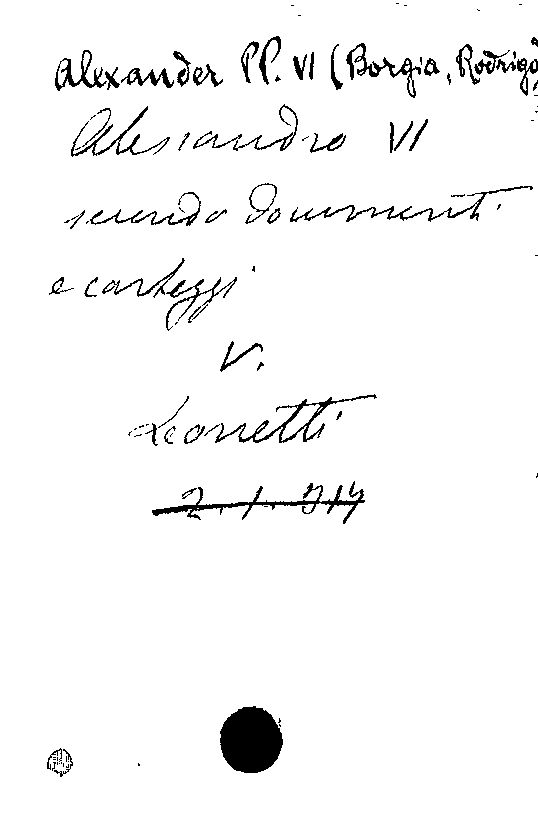 Alexander PP. VI (Borgia, Rodrigo
Alessandro VI
secondo documenti
e carteggi
V.
Leonetti
2. 1.